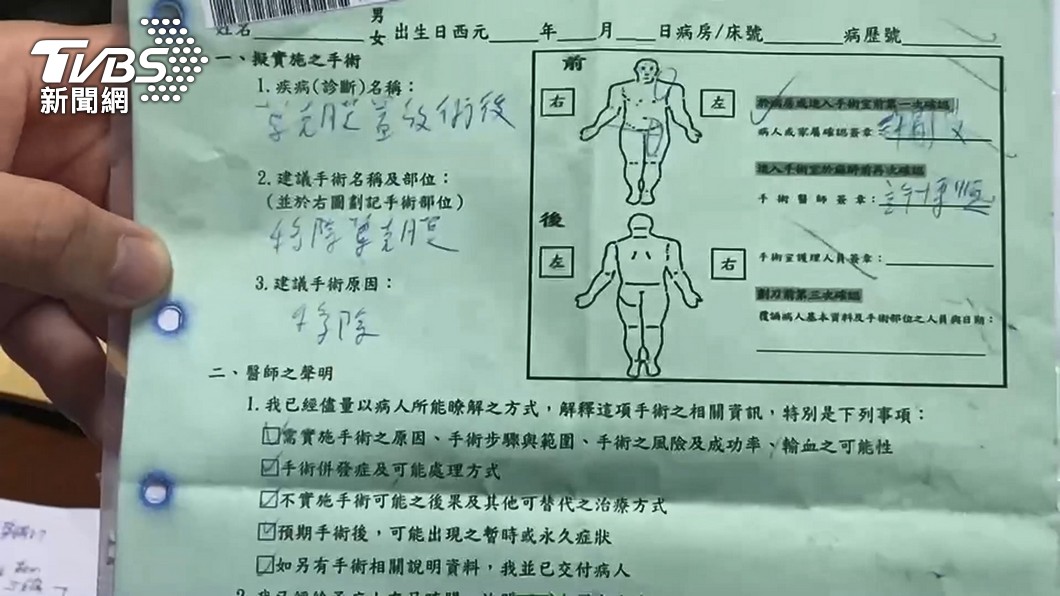 TVBS
新聞網
姓名 男 女 出生日西元 年 月 日病房/床號 病歷號
一、擬實施之手術
1.疾病(診斷)名稱：
術後
2.建議手術名稱及部位：
(並於右圖劃記手術部位)
移除葉克膜
3.建議手術原因：
移除
前
右
左
後
左
右
於病房或進入手術室前第一次確認
病人或家屬確認簽章：
進入手術室於麻醉前再次確認
手術醫師簽章：
手術室護理人員簽章：
劃刀前第三次確認
覆誦病人基本資料及手術部位之人員與日期：
二、醫師之聲明
1.我已經儘量以病人所能瞭解之方式，解釋這項手術之相關資訊，特別是下列事項：
需實施手術之原因、手術步驟與範圍、手術之風險及成功率、輸血之可能性
手術併發症及可能處理方式
不實施手術可能之後果及其他可替代之治療方式
預期手術後，可能出現之暫時或永久症狀
如另有手術相關說明資料，我並已交付病人